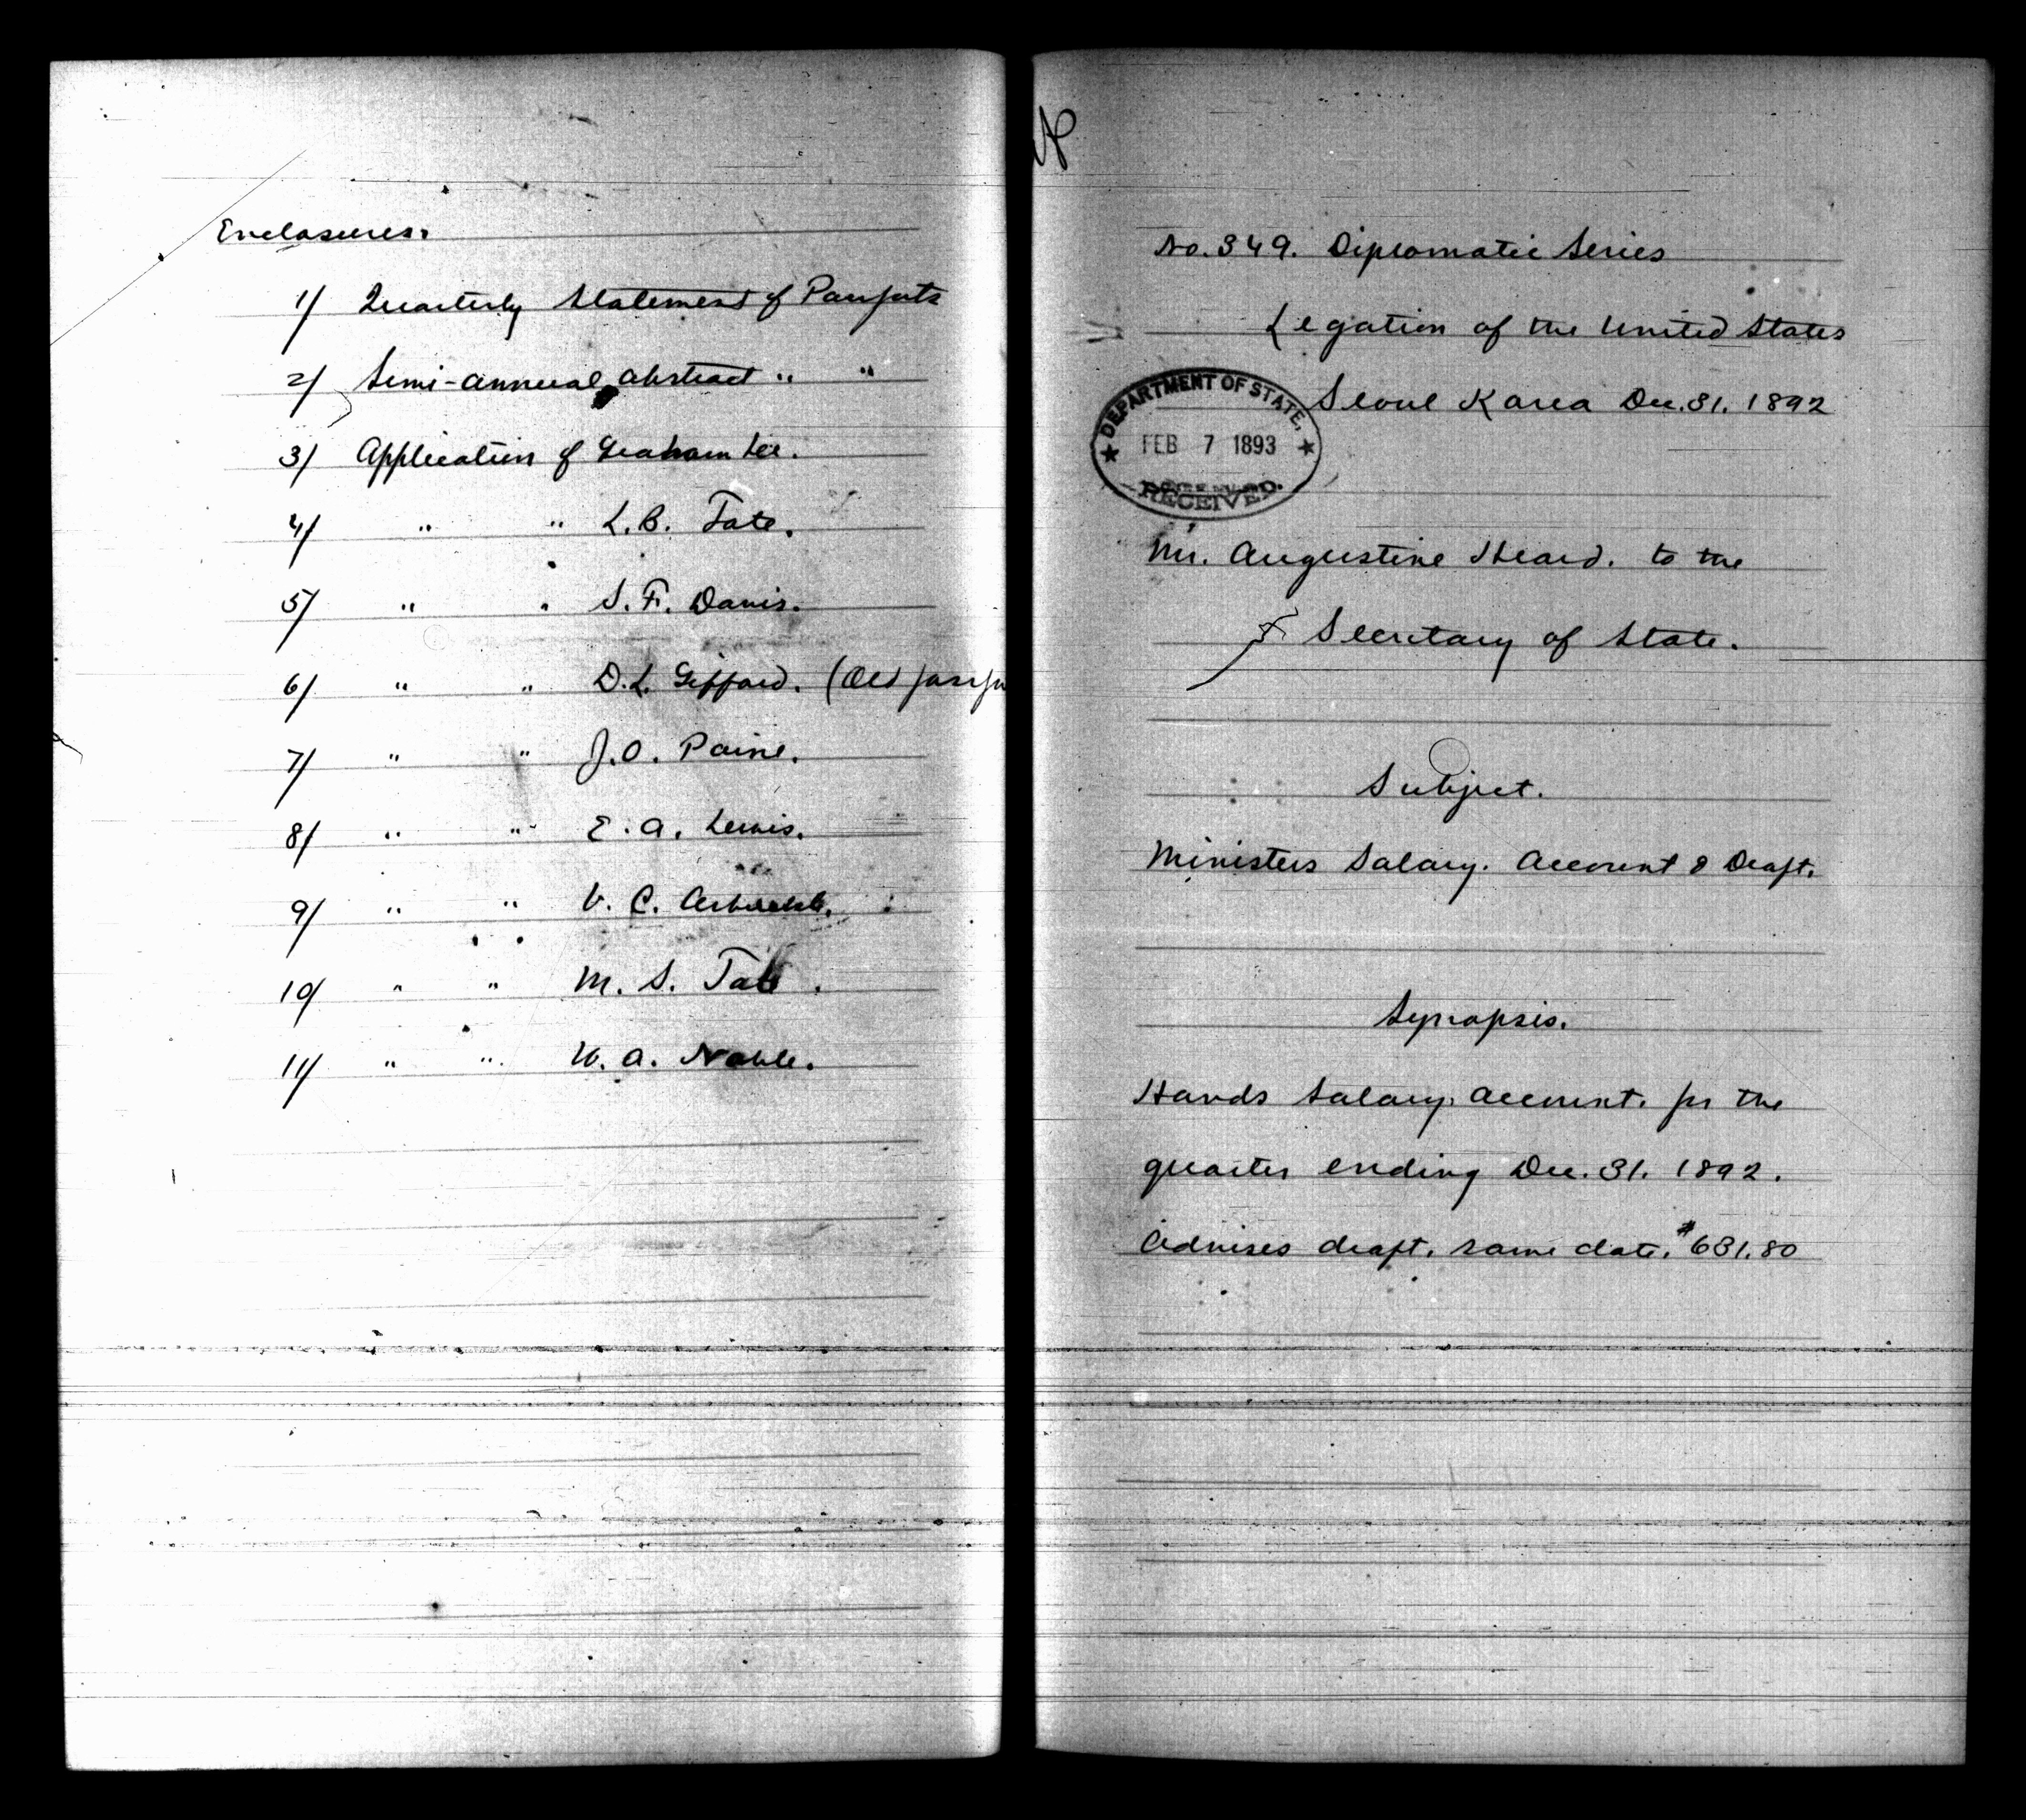 Enclosures.
1/ Quarterly Statement of Passports
2/ Semi-annual abstract " "
3/ Application of Graham Lee.
4/ " " L.B. Tate.
5/ " " S.F. Davis.
6/ " " D.L. Gifford. (Old
7/ " " J.O. Paine.
8/ " " E.A. Lewis.
9/ " " V.C. Arbuckle.
10/ " " M.S. Tate.
11/ " " W.A. Noble.
No. 349. Diplomatic Series
Legation of the United States
Seoul Korea Dec. 31. 1892
DEPARTMENT OF STATE,
FEB 7 1893
RECEIVED.
Mr. Augustine Heard. to the
Secretary of State.
Subject.
Ministers Salary. Account & Draft.
Synopsis.
Hands Salary Account. for the
quarter ending Dec. 31. 1892.
Advises draft. same date. $631.80